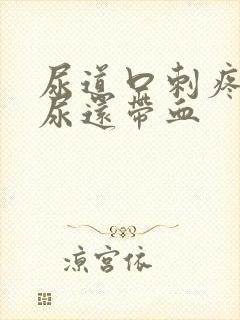 尿道口刺疼
尿還帶血
涼宮依